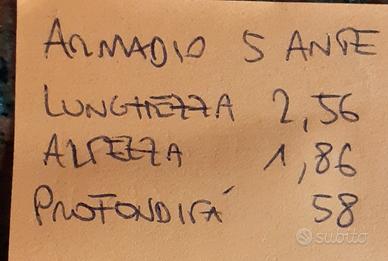 ARMADIO 5 ANTE
LUNGHEZZA 2,56
ALTEZZA 1,86
PROFONDITÁ 58
subito